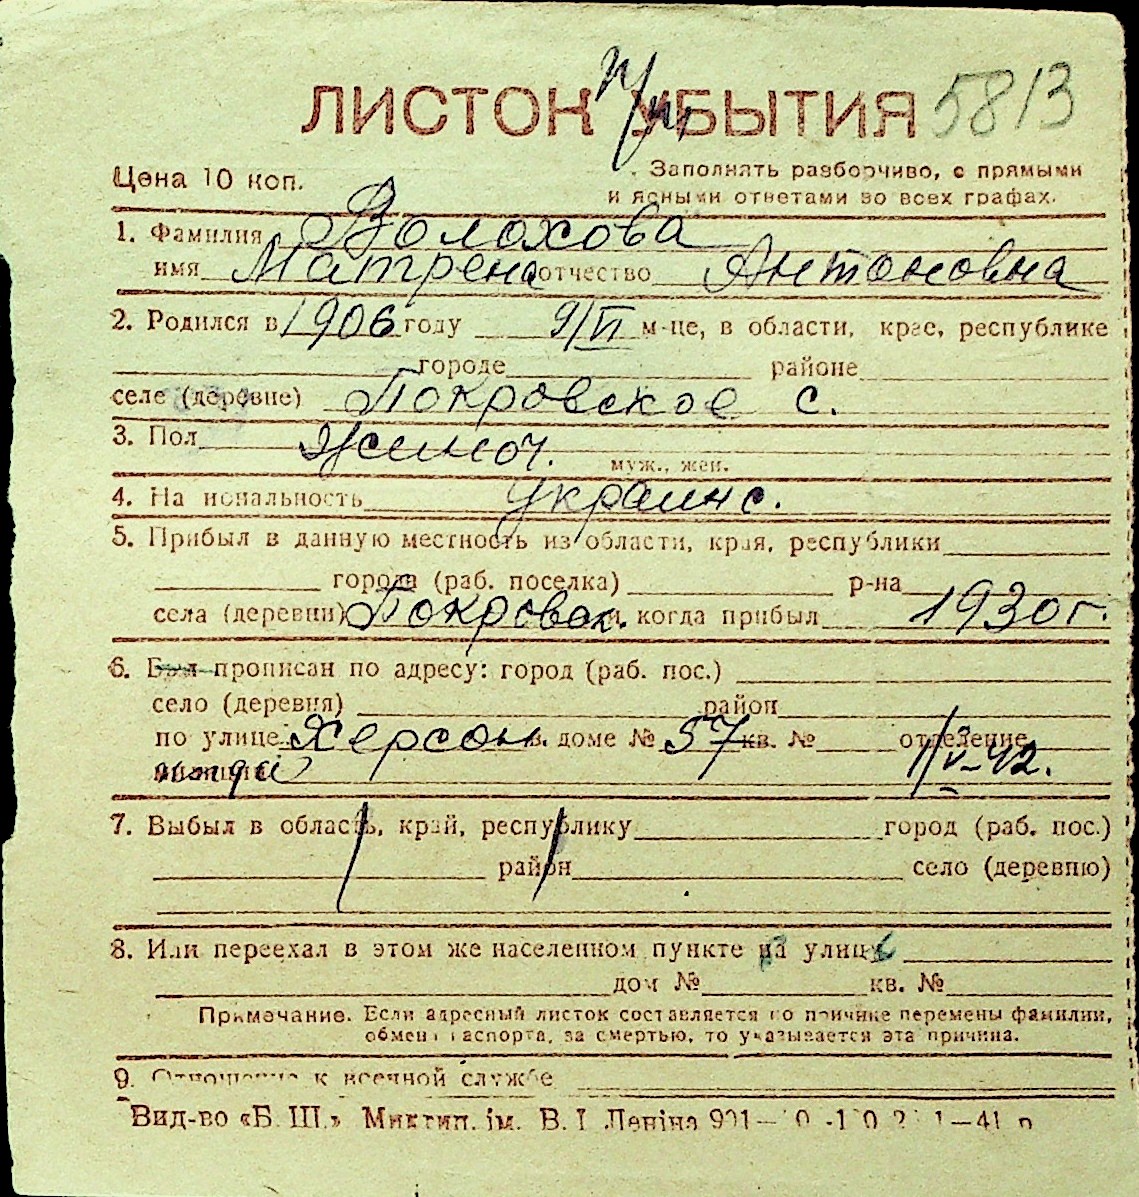 ЛИСТОК УБЫТИЯ 5813
Цена 10 коп.
Заполнять разборчиво, с прямыми
и ясными ответами во всех графах.
1. Фамилия Волохова
имя Матрена отчество Антоновна
2. Родился в 1906 году 9/VI м-це, в области, крае, республике
городе районе
селе (деревне) Покровское с.
3. Пол
муж., жен.
4. Национальность украинс.
5. Прибыл в данную местность из области, края, республики
города (раб. поселка) р-на
села (деревни) Покровск. и когда прибыл 1930 г.
6. Был прописан по адресу: город (раб. пос.)
село (деревня) район
по улице Херсон. в доме № 57 кв. № отделение
милиции
7. Выбыл в область, край, республику город (раб. пос.)
район село (деревню)
8. Или переехал в этом же населенном пункте на улицу
дом № кв. №
Примечание. Если адресный листок составляется по причине перемены фамилии,
обмена паспорта, за смертью, то указывается эта причина.
9. Отношение к военной службе
Вид-во «Б. Ш.» Миктип. ім. В. І. Леніна